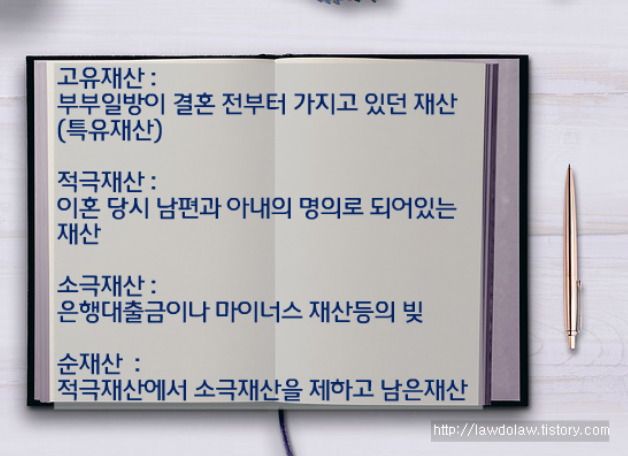 고유재산 :
부부일방이 결혼 전부터 가지고 있던 재산
(특유재산)
적극재산 :
이혼 당시 남편과 아내의 명의로 되어있는
재산
소극재산 :
은행대출금이나 마이너스 재산등의 빚
순재산 :
적극재산에서 소극재산을 제하고 남은재산
http://lawdolaw.tistory.com